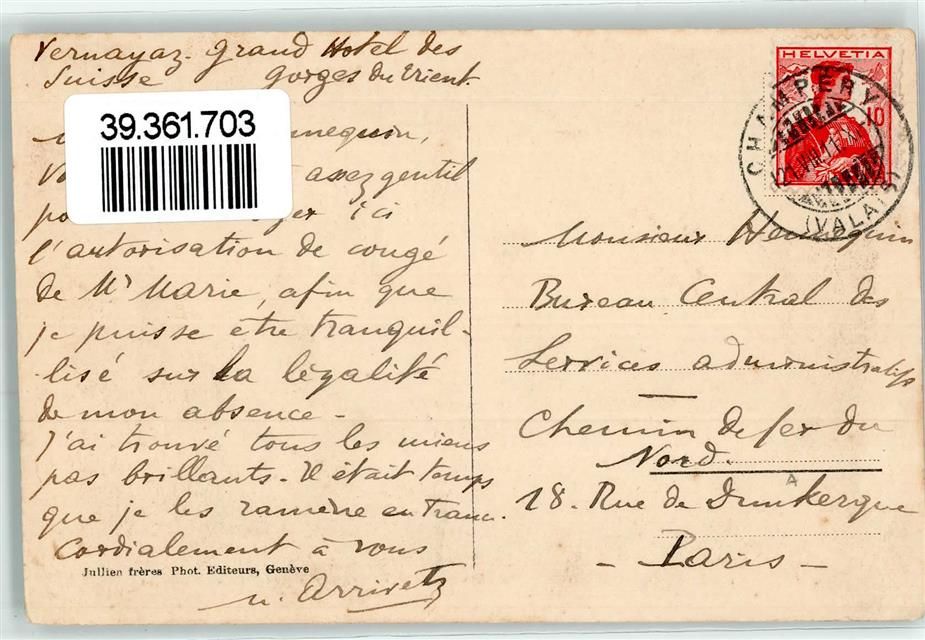 Vernayaz. Grand Hotel des
Suisse Gorges du Trient.
39.361.703
nnequin,
assez gentil
ici
l'autorisation de congé
de Mr Marie, afin que
je puisse etre tranquil-
lisé sur la légalité
de mon absence-
J'ai trouvé tous les miens
pas brillants. Il était temps
que je les ramène en France.
Cordialement à vous
Jullien frères Phot. Editeurs, Genève
HELVETIA
10
CHAMPÉRY
(VALAIS)
Monsieur Hennequin
Bureau Central des
Services administratifs
Chemin de fer du
Nord.
18. Rue de Dunkerque
- Paris -